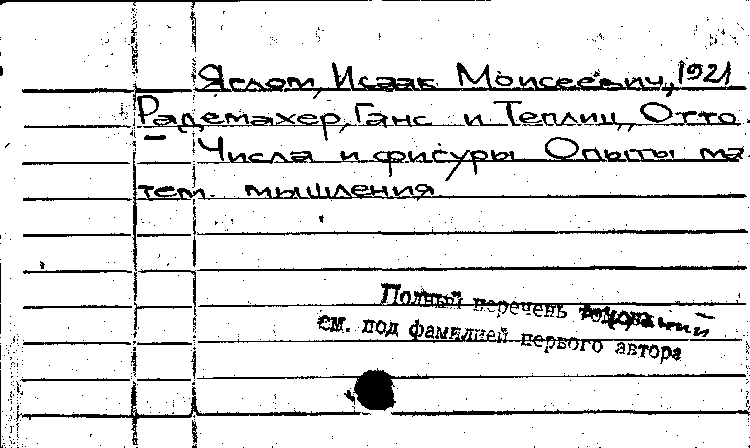 Яглом, Исаак Моисеевич, 1921
Радемахер, Ганс и Теплиц, Отто.
Числа и фигуры Опыты ма
тем. мышления
Полный перечень
см. под фамилией первого автора